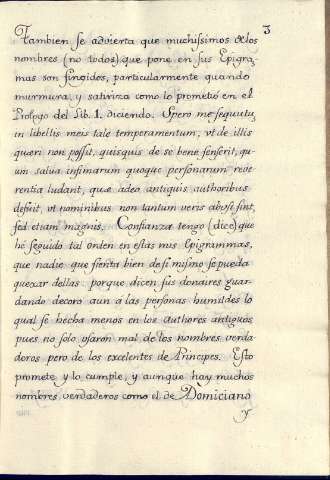 3
Tambien se advierta que muchissimos de los
nombres (no todos) que pone en sus Epigra-
mas son fingidos, particularmente quando
murmura, y satiriza como lo prometió en el
Prologo del Lib. 1. diciendo. Spero me sequutu
in libellis meis tale temperamentum, vt de illis
quæri non possit, quisquis de se bene senserit, qu-
um salua infimarum quoque personarum reve-
rentia ludant, quæ adeo antiquis authoribus
defuit, vt nominibus non tantum veris abusi sint,
sed etiam magnis. Confianza tengo (dice) que
hé seguido tal orden en estas mis Epigrammas,
que nadie que sienta bien de si mismo se pueda
quexar dellas. porque dicen sus donaires guar-
dando decoro aun á las personas humildes lo
qual se hecha menos en los Authores antiguos,
pues no solo osaron mal de los nombres verda
deros pero de los excelentes de Principes. Esto
promete y lo cumple, y aunque hay muchos
nombres verdaderos como el de Domiciano
y